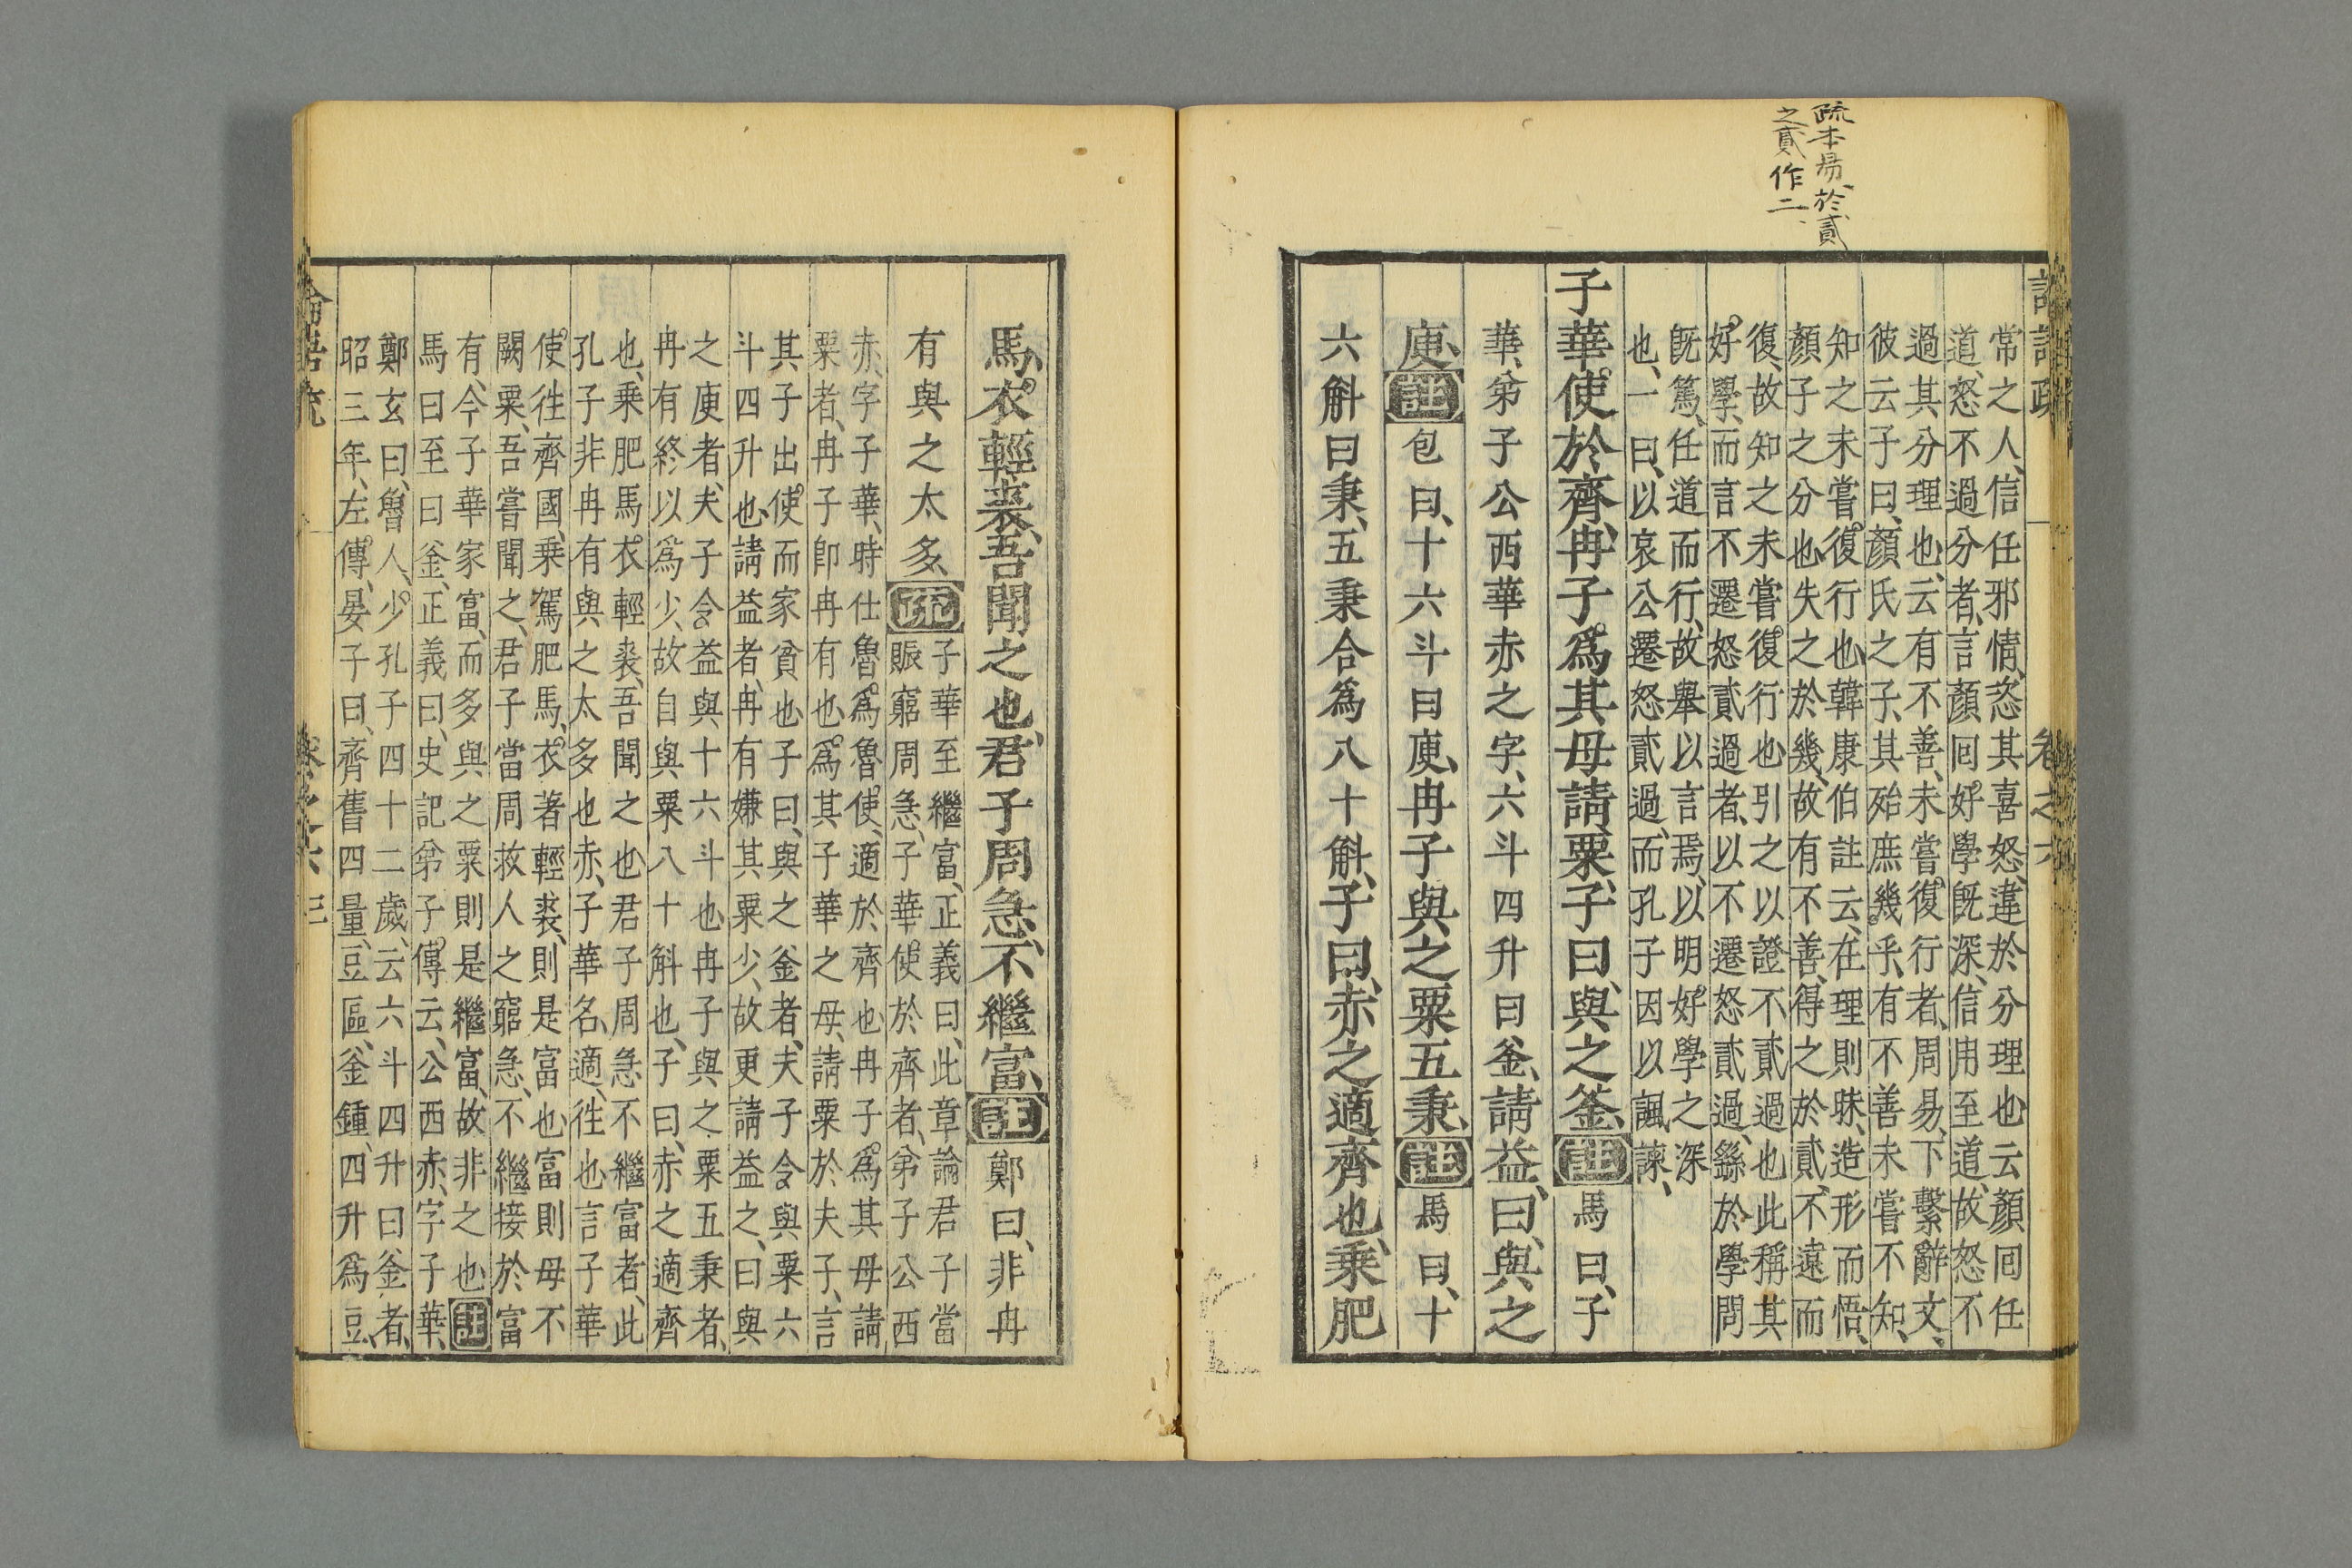 疏本易、於貳
之貳作二、
常之人、信任邪情、恣其喜怒、違於分理也云顏回任
道、怒不過分者、言顏回好學既深、信用至道、故怒不
過其分理也、云有不善、未嘗復行者、周易、下繫辭文、
彼云子曰、顏氏之子、其殆庶幾乎、有不善未嘗不知、
知之未嘗復行也、韓康伯註云、在理則昧、造形而悟、
顏子之分也失之於幾、故有不善、得之於貳、不遠而
復、故知之未嘗復行也引之以證不貳過也此稱其
好學、而言不遷怒貳過者、以不遷怒貳過、繇於學問
既篤、任道而行、故舉以言焉、以明好學之深
也、一曰、以哀公遷怒貳過、而孔子因以諷諫、
子華使於齊、冉子爲其母請粟、子曰、與之釜、註馬曰、子
華、弟子公西華赤之字、六斗四升曰釜、請益、曰、與之
庾、註包曰、十六斗曰庾、冉子與之粟五秉、註馬曰、十
六斛曰秉、五秉合爲八十斛、子曰、赤之適齊也、乘肥
卷之六
馬、衣輕裘、吾聞之也、君子周急、不繼富、註鄭曰、非冉
有與之太多、疏子華至繼富、正義曰、此章論君子當
賑窮周急、子華使於齊者、弟子公西
赤、字子華、時仕魯、爲魯使、適於齊也冉子爲其母請
粟者、冉子卽冉有也、爲其子華之母、請粟於夫子、言
其子出使而家貧也子曰、與之釜者、夫子令與粟六
斗四升也、請益者、冉有嫌其粟少、故更請益之、曰與
之庾者、夫子令益與十六斗也冉子與之粟五秉者、
冉有終以爲少、故自與粟八十斛也、子曰、赤之適齊
也、乘肥馬衣輕裘、吾聞之也君子周急不繼富者、此
孔子非冉有與之太多也赤、子華名、適、往也言子華
使往齊國、乘駕肥馬、衣著輕裘、則是富也富則母不
闕粟、吾嘗聞之、君子當周救人之窮急、不繼接於富
有、今子華家富、而多與之粟則是繼富、故非之也註
馬曰至曰釜、正義曰、史記弟子傳云、公西赤、字子華、
鄭玄曰、魯人、少孔子四十二歲、云六斗四升曰釜者、
昭三年、左傳、晏子曰、齊舊四量、豆區、釜鍾、四升爲豆、